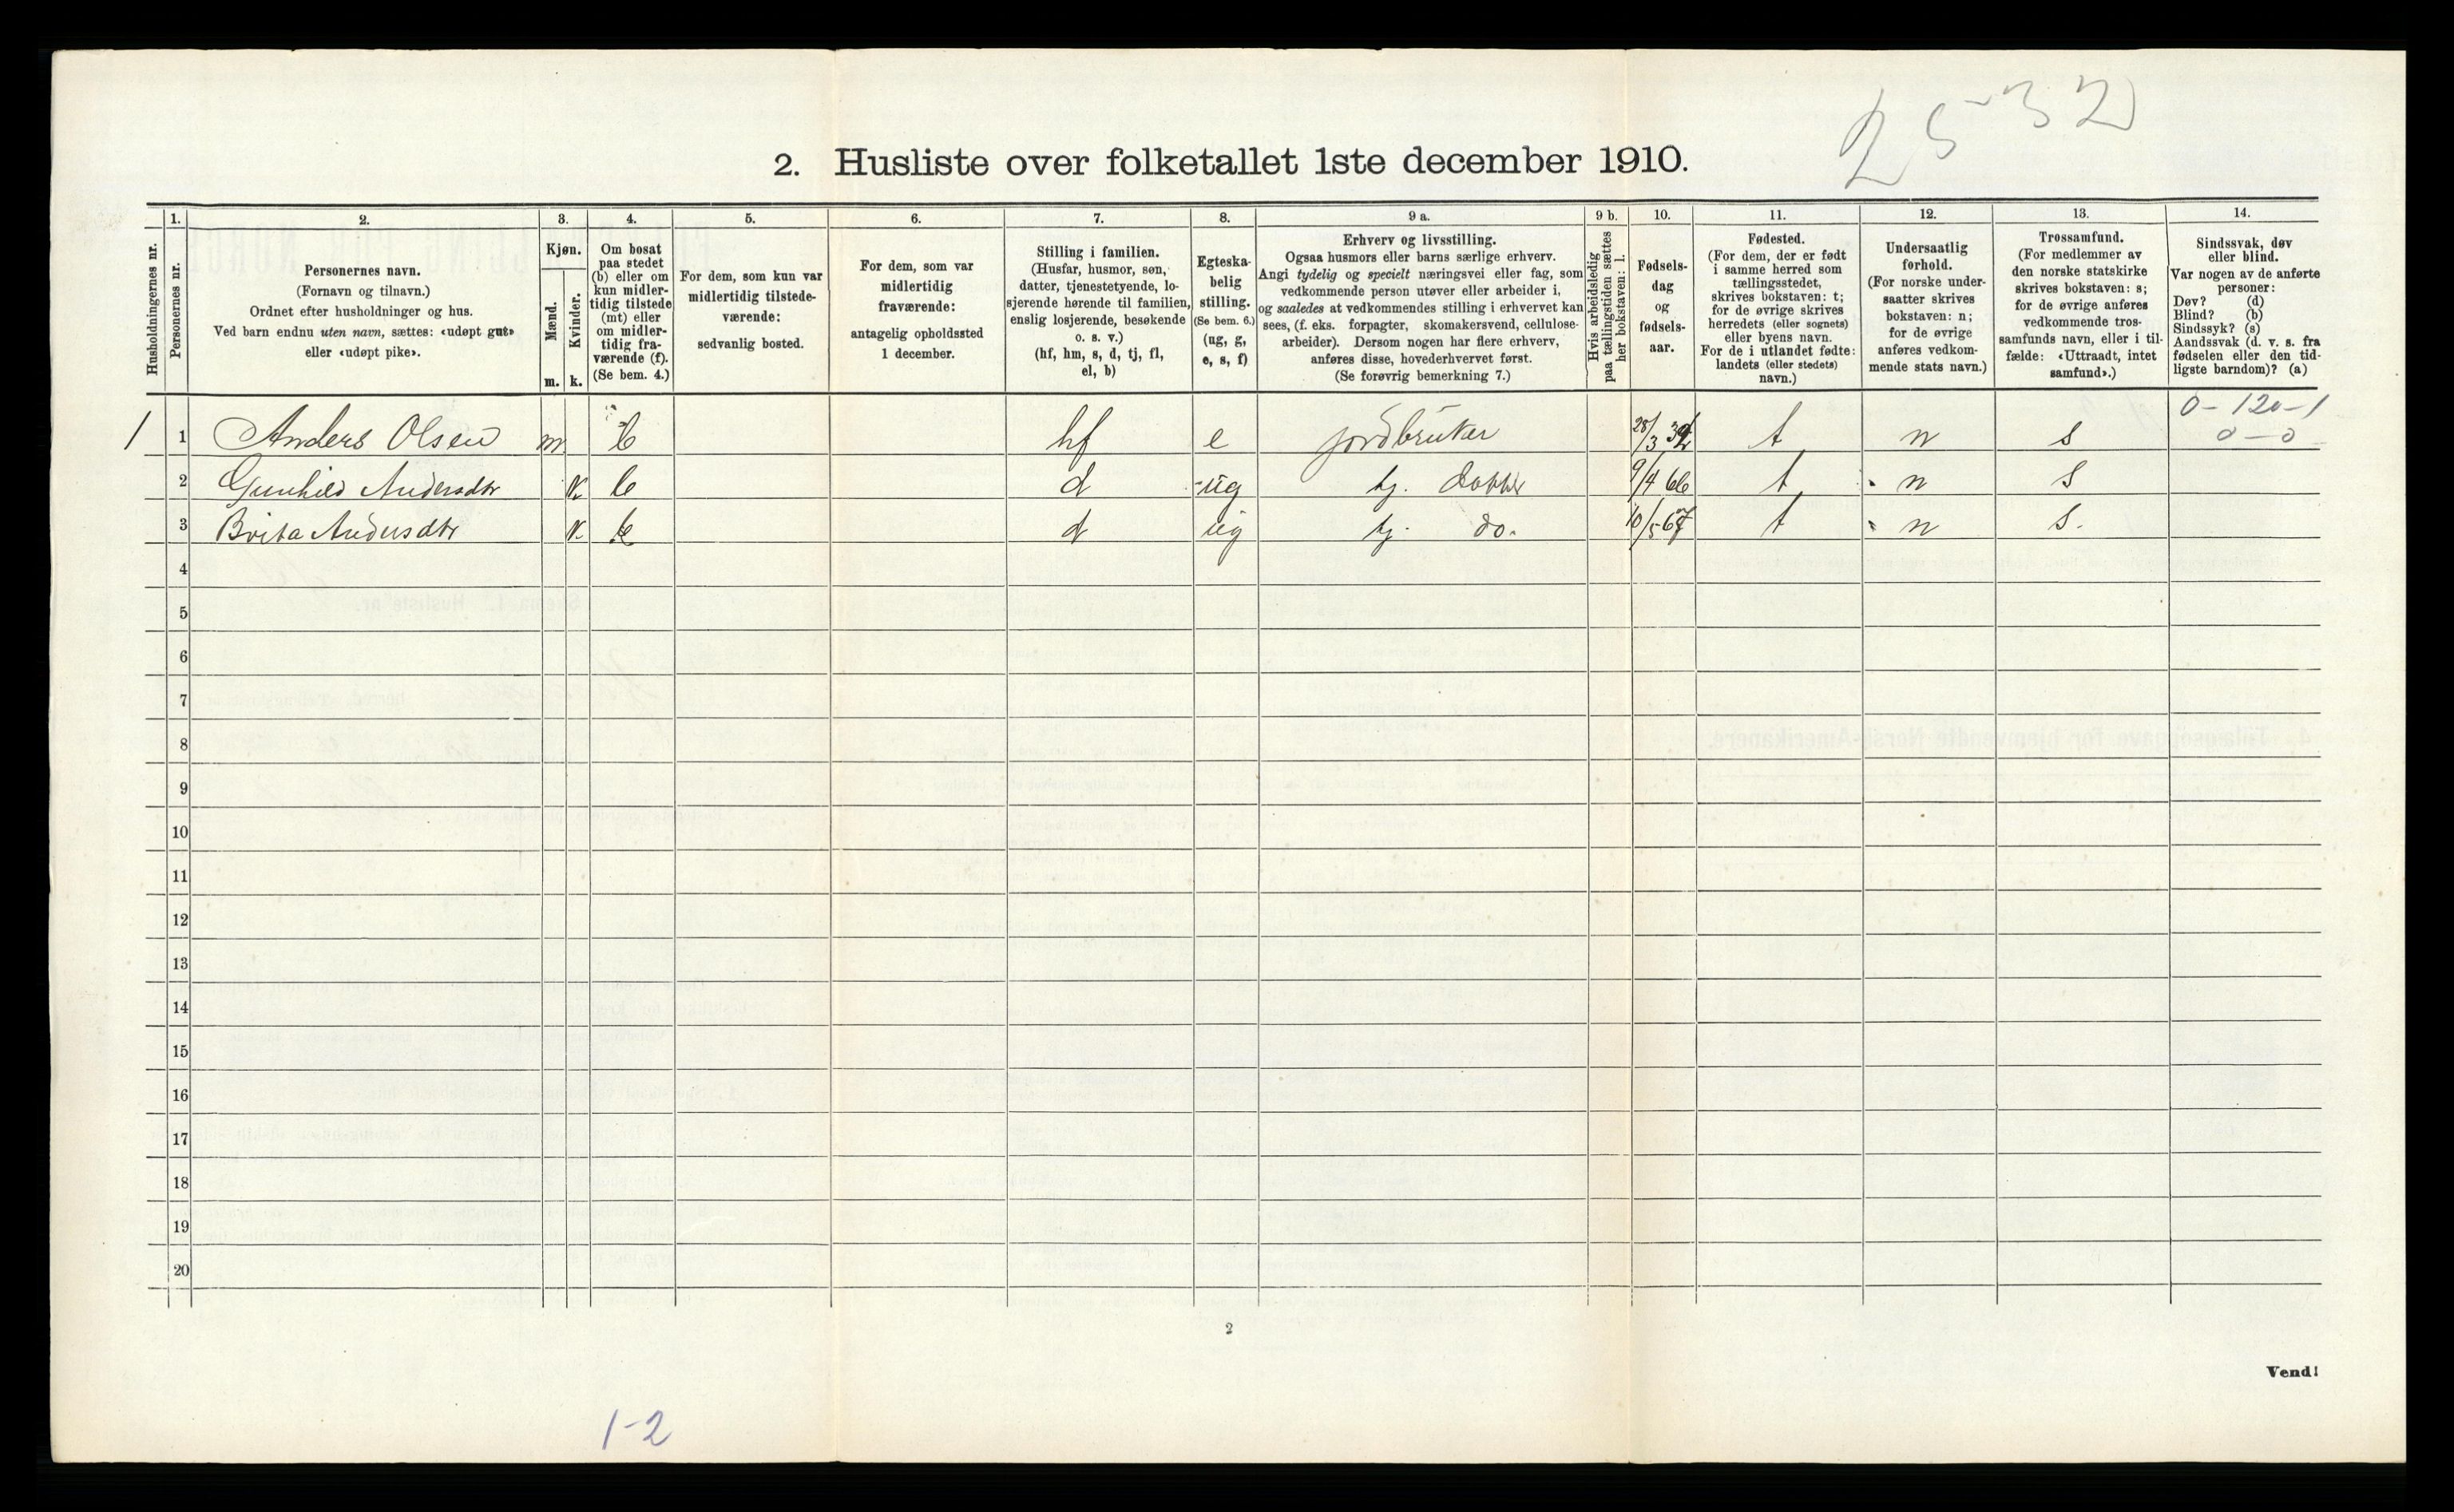 25-32
2. Husliste over folketallet 1ste december 1910.
Husholdningernes nr.
1. Personernes nr.
2. Personernes navn.
(Fornavn og tilnavn.)
Ordnet efter husholdninger og hus.
Ved barn endnu uten navn, sættes: «udøpt gut»
eller «udøpt pike».
3. Kjøn.
Mænd. m.
Kvinder. k.
4. Om bosat
paa stedet
(b) eller om
kun midler-
tidig tilstede
(mt) eller
om midler-
tidig fra-
værende (f).
(Se bem. 4.)
5. For dem, som kun var
midlertidig tilstede-
værende:
sedvanlig bosted.
6. For dem, som var
midlertidig
fraværende:
antagelig opholdssted
1 december.
7. Stilling i familien.
(Husfar, husmor, søn,
datter, tjenestetyende, lo-
sjerende hørende til familien,
enslig losjerende, besøkende
o. s. v.)
(hf, hm, s, d, tj, fl,
el, b)
8. Egteska-
belig
stilling.
(Se bem. 6.)
(ug, g,
e, s, f)
9 a. Erhverv og livsstilling.
Ogsaa husmors eller barns særlige erhverv.
Angi tydelig og specielt næringsvei eller fag, som
vedkommende person utøver eller arbeider i,
og saaledes at vedkommendes stilling i erhvervet kan
sees, (f. eks. forpagter, skomakersvend, cellulose-
arbeider). Dersom nogen har flere erhverv,
anføres disse, hovederhvervet først.
(Se forøvrig bemerkning 7.)
9 b. Hvis arbeidsledig
paa tællingstiden sættes
her bokstaven: l.
10. Fødsels-
dag
og
fødsels-
aar.
11. Fødested.
(For dem, der er født
i samme herred som
tællingsstedet,
skrives bokstaven: t;
for de øvrige skrives
herredets (eller sognets)
eller byens navn.
For de i utlandet fødte:
landets (eller stedets)
navn.)
12. Undersaatlig
forhold.
(For norske under-
saatter skrives
bokstaven: n;
for de øvrige
anføres vedkom-
mende stats navn.)
13. Trossamfund.
(For medlemmer av
den norske statskirke
skrives bokstaven: s;
for de øvrige anføres
vedkommende tros-
samfunds navn, eller i til-
fælde: «Uttraadt, intet
samfund».)
14. Sindssvak, døv
eller blind.
Var nogen av de anførte
personer:
Døv? (d)
Blind? (b)
Sindssyk? (s)
Aandssvak (d. v. s. fra
fødselen eller den tid-
ligste barndom)? (a)
0-120-1
1 1 Anders Olsen m b hf e jordbruker 28/3 t n s 0-0
2 Gunhild Andersdtr k b d ug tj. 9/4 66 t n s
3 Brita Andersdtr k b d ug tj. do. 10/5 67 t n s.
4
5
6
7
8
9
10
11
12
13
14
15
16
17
18
19
20
2
Vend!
1-2